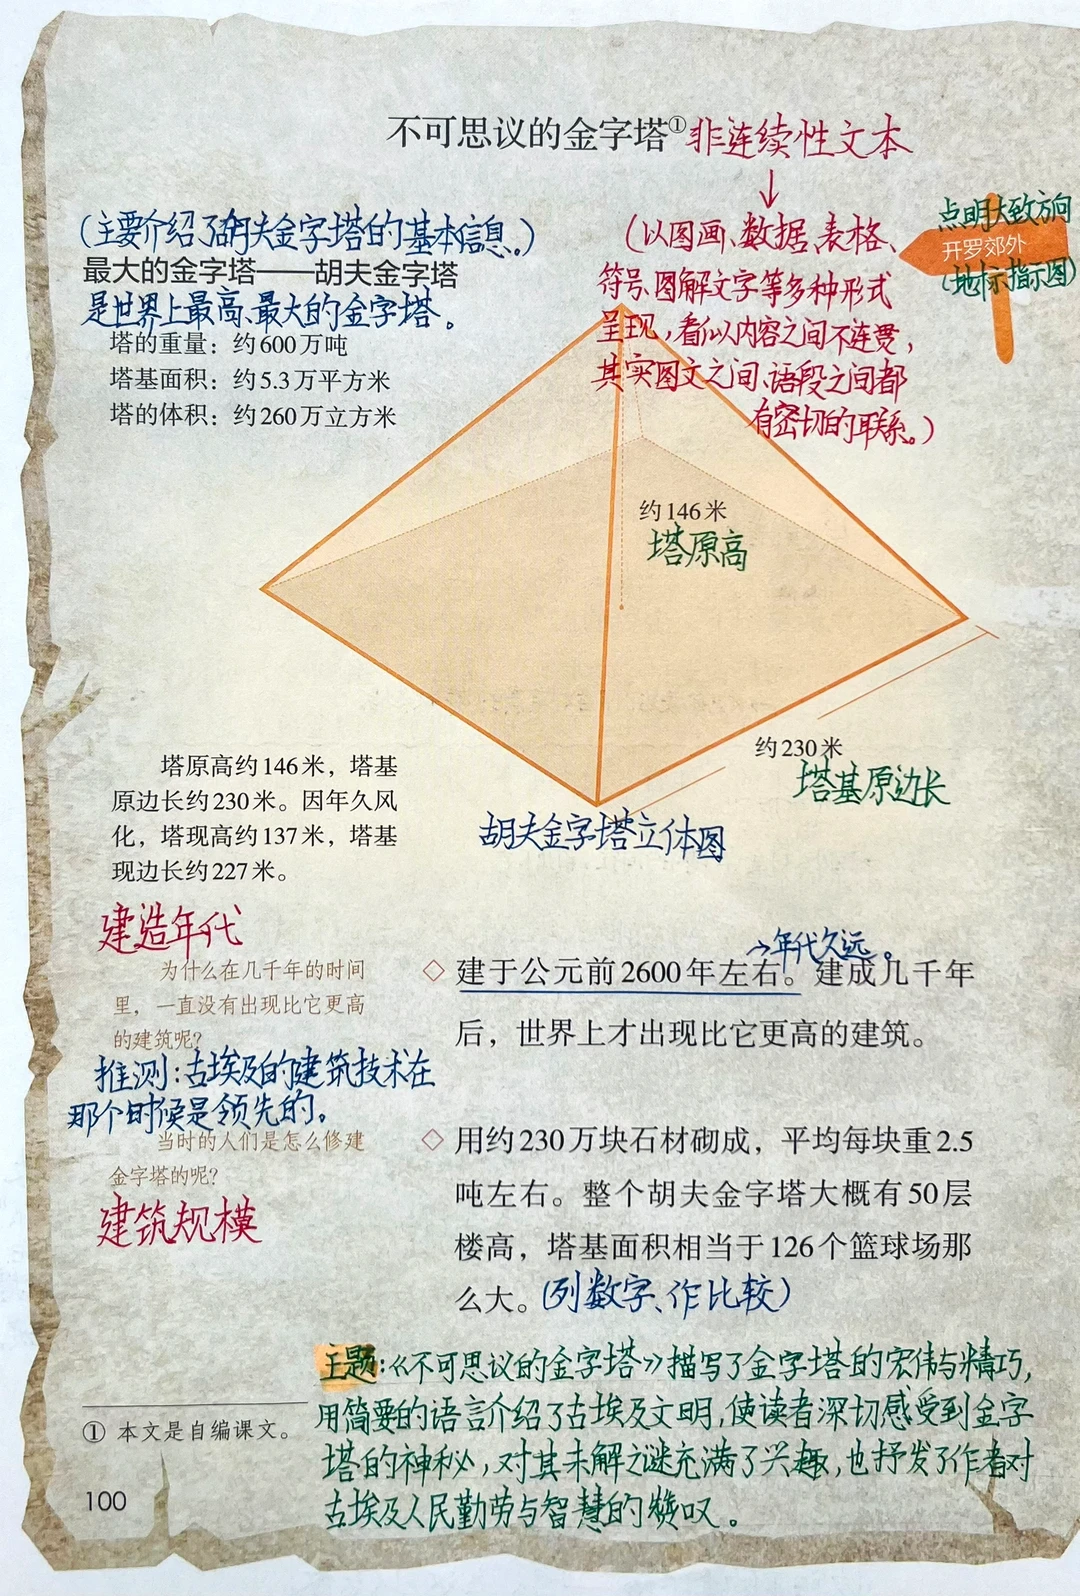 不可思议的金字塔①非连续性文本
(以图画、数据、表格、
符号、图解文字等多种形式
呈现,看似内容之间不连贯,
其实图文之间、语段之间都
有密切的联系。)
点明大致方向
开罗郊外
(地标指示图)
(主要介绍了胡夫金字塔的基本信息。)
最大的金字塔——胡夫金字塔
是世界上最高、最大的金字塔。
塔的重量：约600万吨
塔基面积：约5.3万平方米
塔的体积：约260万立方米
约146米
塔原高
约230米
塔基原边长
胡夫金字塔立体图
塔原高约146米，塔基
原边长约230米。因年久风
化，塔现高约137米，塔基
现边长约227米。
建造年代
为什么在几千年的时间
里，一直没有出现比它更高
的建筑呢？
推测:古埃及的建筑技术在
那个时候是领先的。
→年代久远。
◇ 建于公元前2600年左右。建成几千年
后，世界上才出现比它更高的建筑。
当时的人们是怎么修建
金字塔的呢？
建筑规模
◇ 用约230万块石材砌成，平均每块重2.5
吨左右。整个胡夫金字塔大概有50层
楼高，塔基面积相当于126个篮球场那
么大。(列数字、作比较)
主题:《不可思议的金字塔》描写了金字塔的宏伟与精巧,
用简要的语言介绍了古埃及文明,使读者深切感受到金字
塔的神秘,对其未解之谜充满了兴趣,也抒发了作者对
古埃及人民勤劳与智慧的赞叹。
① 本文是自编课文。
100